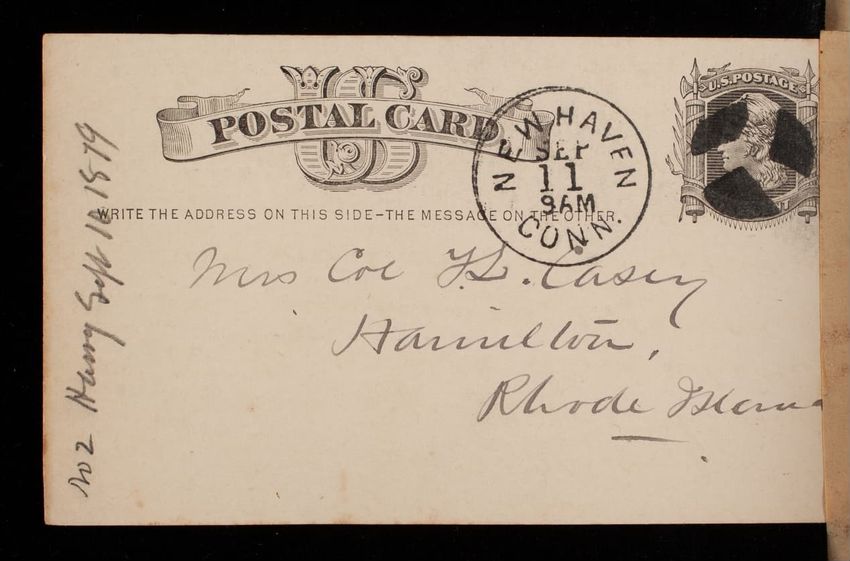 US
POSTAL CARD
U.S. POSTAGE
NEW HAVEN
SEP
11
9AM
CONN.
WRITE THE ADDRESS ON THIS SIDE-THE MESSAGE ON THE OTHER.
Mrs Col T.L. Casey
Hamilton,
Rhode Island
No 2 Harry Sept 10 1879